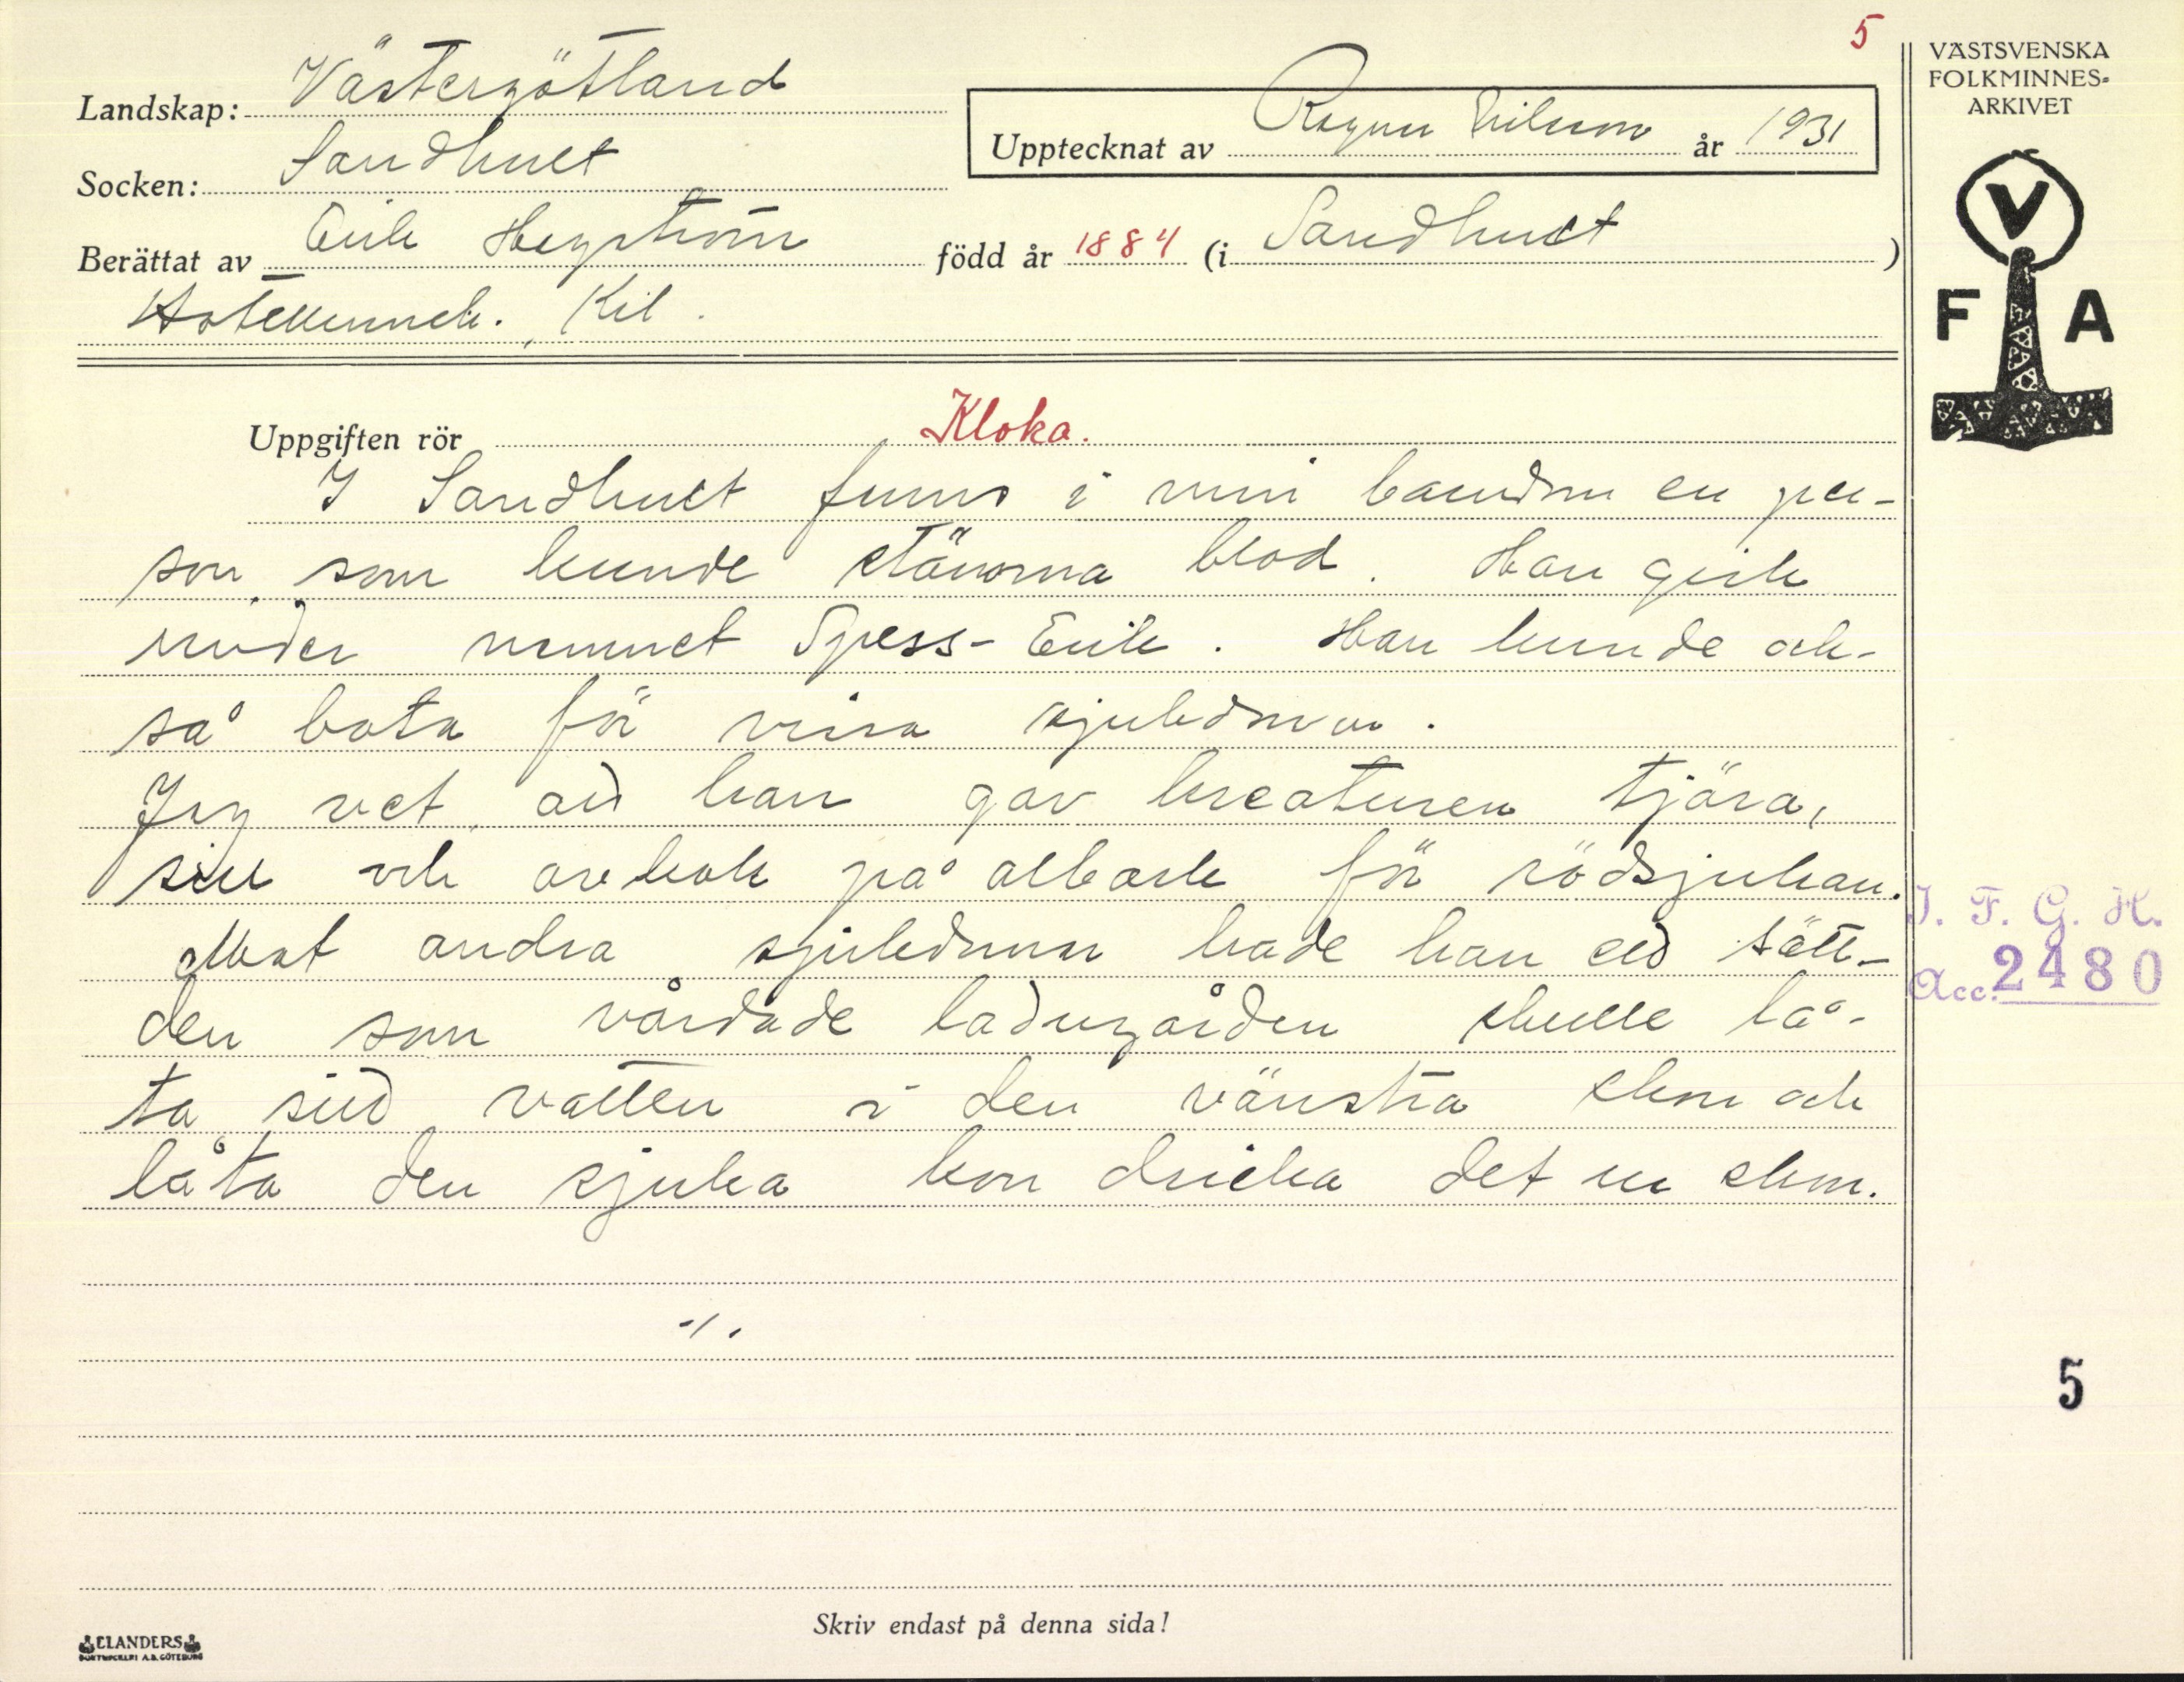 5
VÄSTSVENSKA
FOLKMINNES-
ARKIVET
Landskap: Västergötland
Upptecknat av Ragnar Nilsson år 1931
Socken: Sandhult
Berättat av Erik Hegström född år 1884 (i Sandhult)
Hotellinneh. Kil.
V
F A
Uppgiften rör Kloka.
I Sandhult fanns i min barndom en per-
son, som kunde stämma blod. Han gick
under namnet Spess-Erik. Han kunde ock-
så bota för vissa sjukdomar.
Jag vet, att han gav kreaturen tjära,
sill och avkok på albark för rödsjukan.
Mot andra sjukdomar hade han ett sätt-
den som vårdade ladugården skulle lå-
ta sitt vatten i den vänstra skon och
låta den sjuka kon dricka det ur skon.
-/.
I. F. G. H.
Acc. 2480
5
Skriv endast på denna sida!
ELANDERS
BOKTRYCKERI A.B. GÖTEBORG